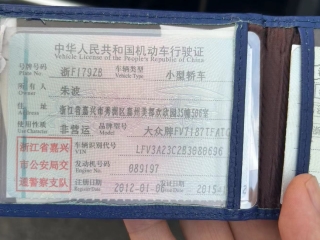 中华人民共和国机动车行驶证
Vehicle License of the People's Republic of China
号牌号码 浙F179Z8 车辆类型 小型轿车
Plate No. Vehicle Type
所有人 朱波
Owner
住址 浙江省嘉兴市秀洲区嘉州美都永欣园
Address
使用性质 非营运 品牌型号 大众牌FV7187TFATG
Use Character Model
浙江省嘉兴 车辆识别代号 LFV3A23C2B3080636
VIN
市公安局交 发动机号码 089197
Engine No.
通警察支队 注册日期 2012-01-0
Register Date